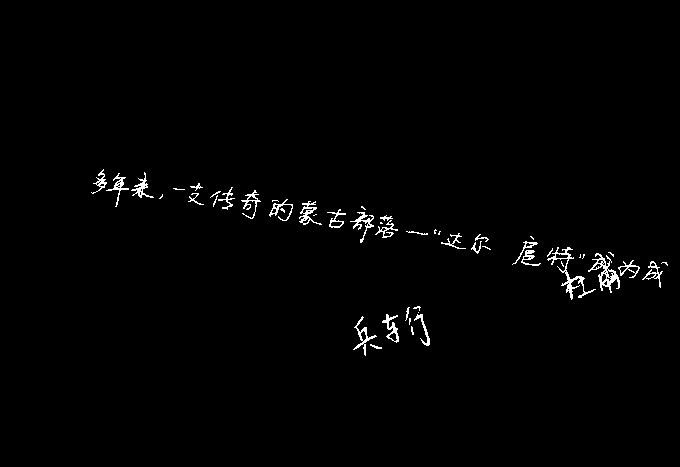 多年来,一支传奇的蒙古部落—“达尔扈特”成为成
杜甫
兵车行